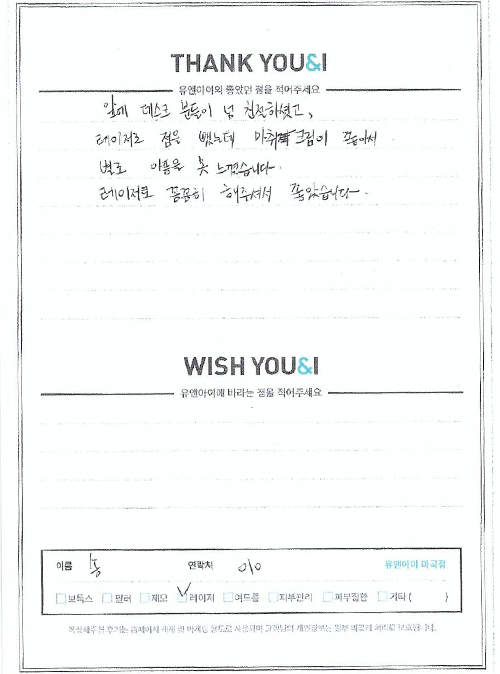 THANK YOU&I
유앤아이의 좋았던 점을 적어주세요
앞에 데스크 분들이 넘 친절하셨고,
레이저로 점을 뺐는데 마취 크림이 좋아서
별로 아픔을 못 느꼈습니다.
레이저로 꼼꼼히 해주셔서 좋았습니다.
WISH YOU&I
유앤아이에 바라는 점을 적어주세요
이름 연락처 010 유앤아이 마곡점
보톡스 필러 제모 레이저 여드름 피부관리 피부질환 기타 ( )